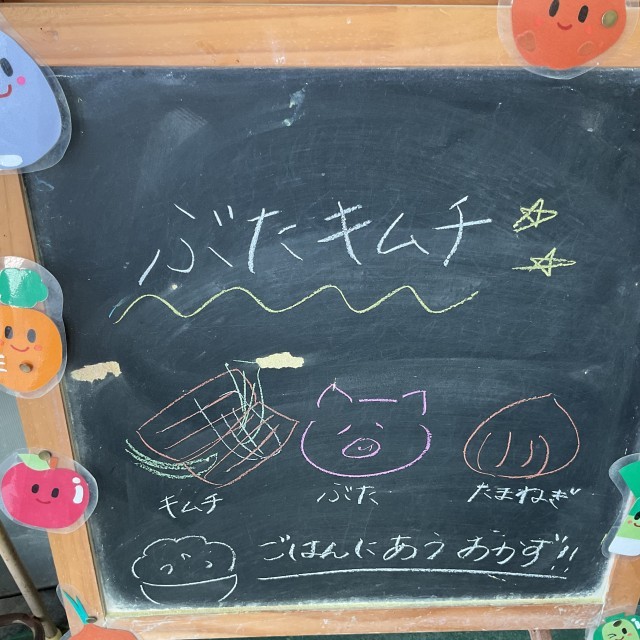 ぶたキムチ
キムチ ぶた たまねぎ
ごはんにあう おかず!!